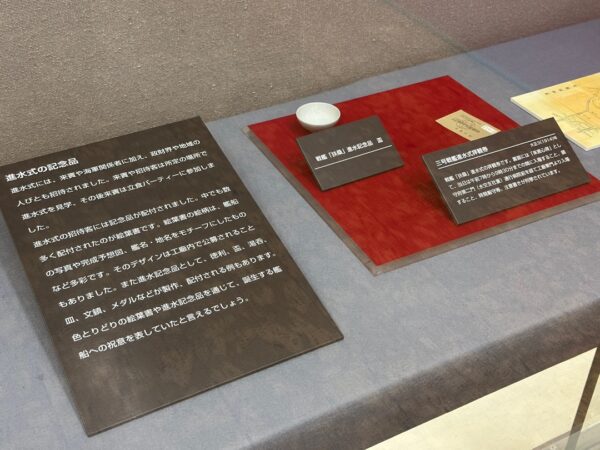 進水式の記念品
進水式には、来賓や海軍関係者に加え、政財界や地域の
人びとも招待されました。来賓や招待客は所定の場所で
進水式を見学、その後来賓は立食パーティーに参加しま
した。
進水式の招待者には記念品が配付されました。中でも数
多く配付されたのが絵葉書です。絵葉書の絵柄は、艦船
の写真や完成予想図、艦名・地名をモチーフにしたもの
など多彩です。そのデザインは工廠内で公募されること
もありました。また進水記念品として、徳利、盃、湯呑、
皿、文鎮、メダルなどが製作、配付される例もあります。
色とりどりの絵葉書や進水記念品を通じて、誕生する艦
船への祝意を表していたと言えるでしょう。
戦艦「扶桑」進水記念品 盃
三号戦艦進水式拝観券
大正3(1914)年
戦艦「扶桑」進水式の拝観券です。裏面には「拝観心得」とし